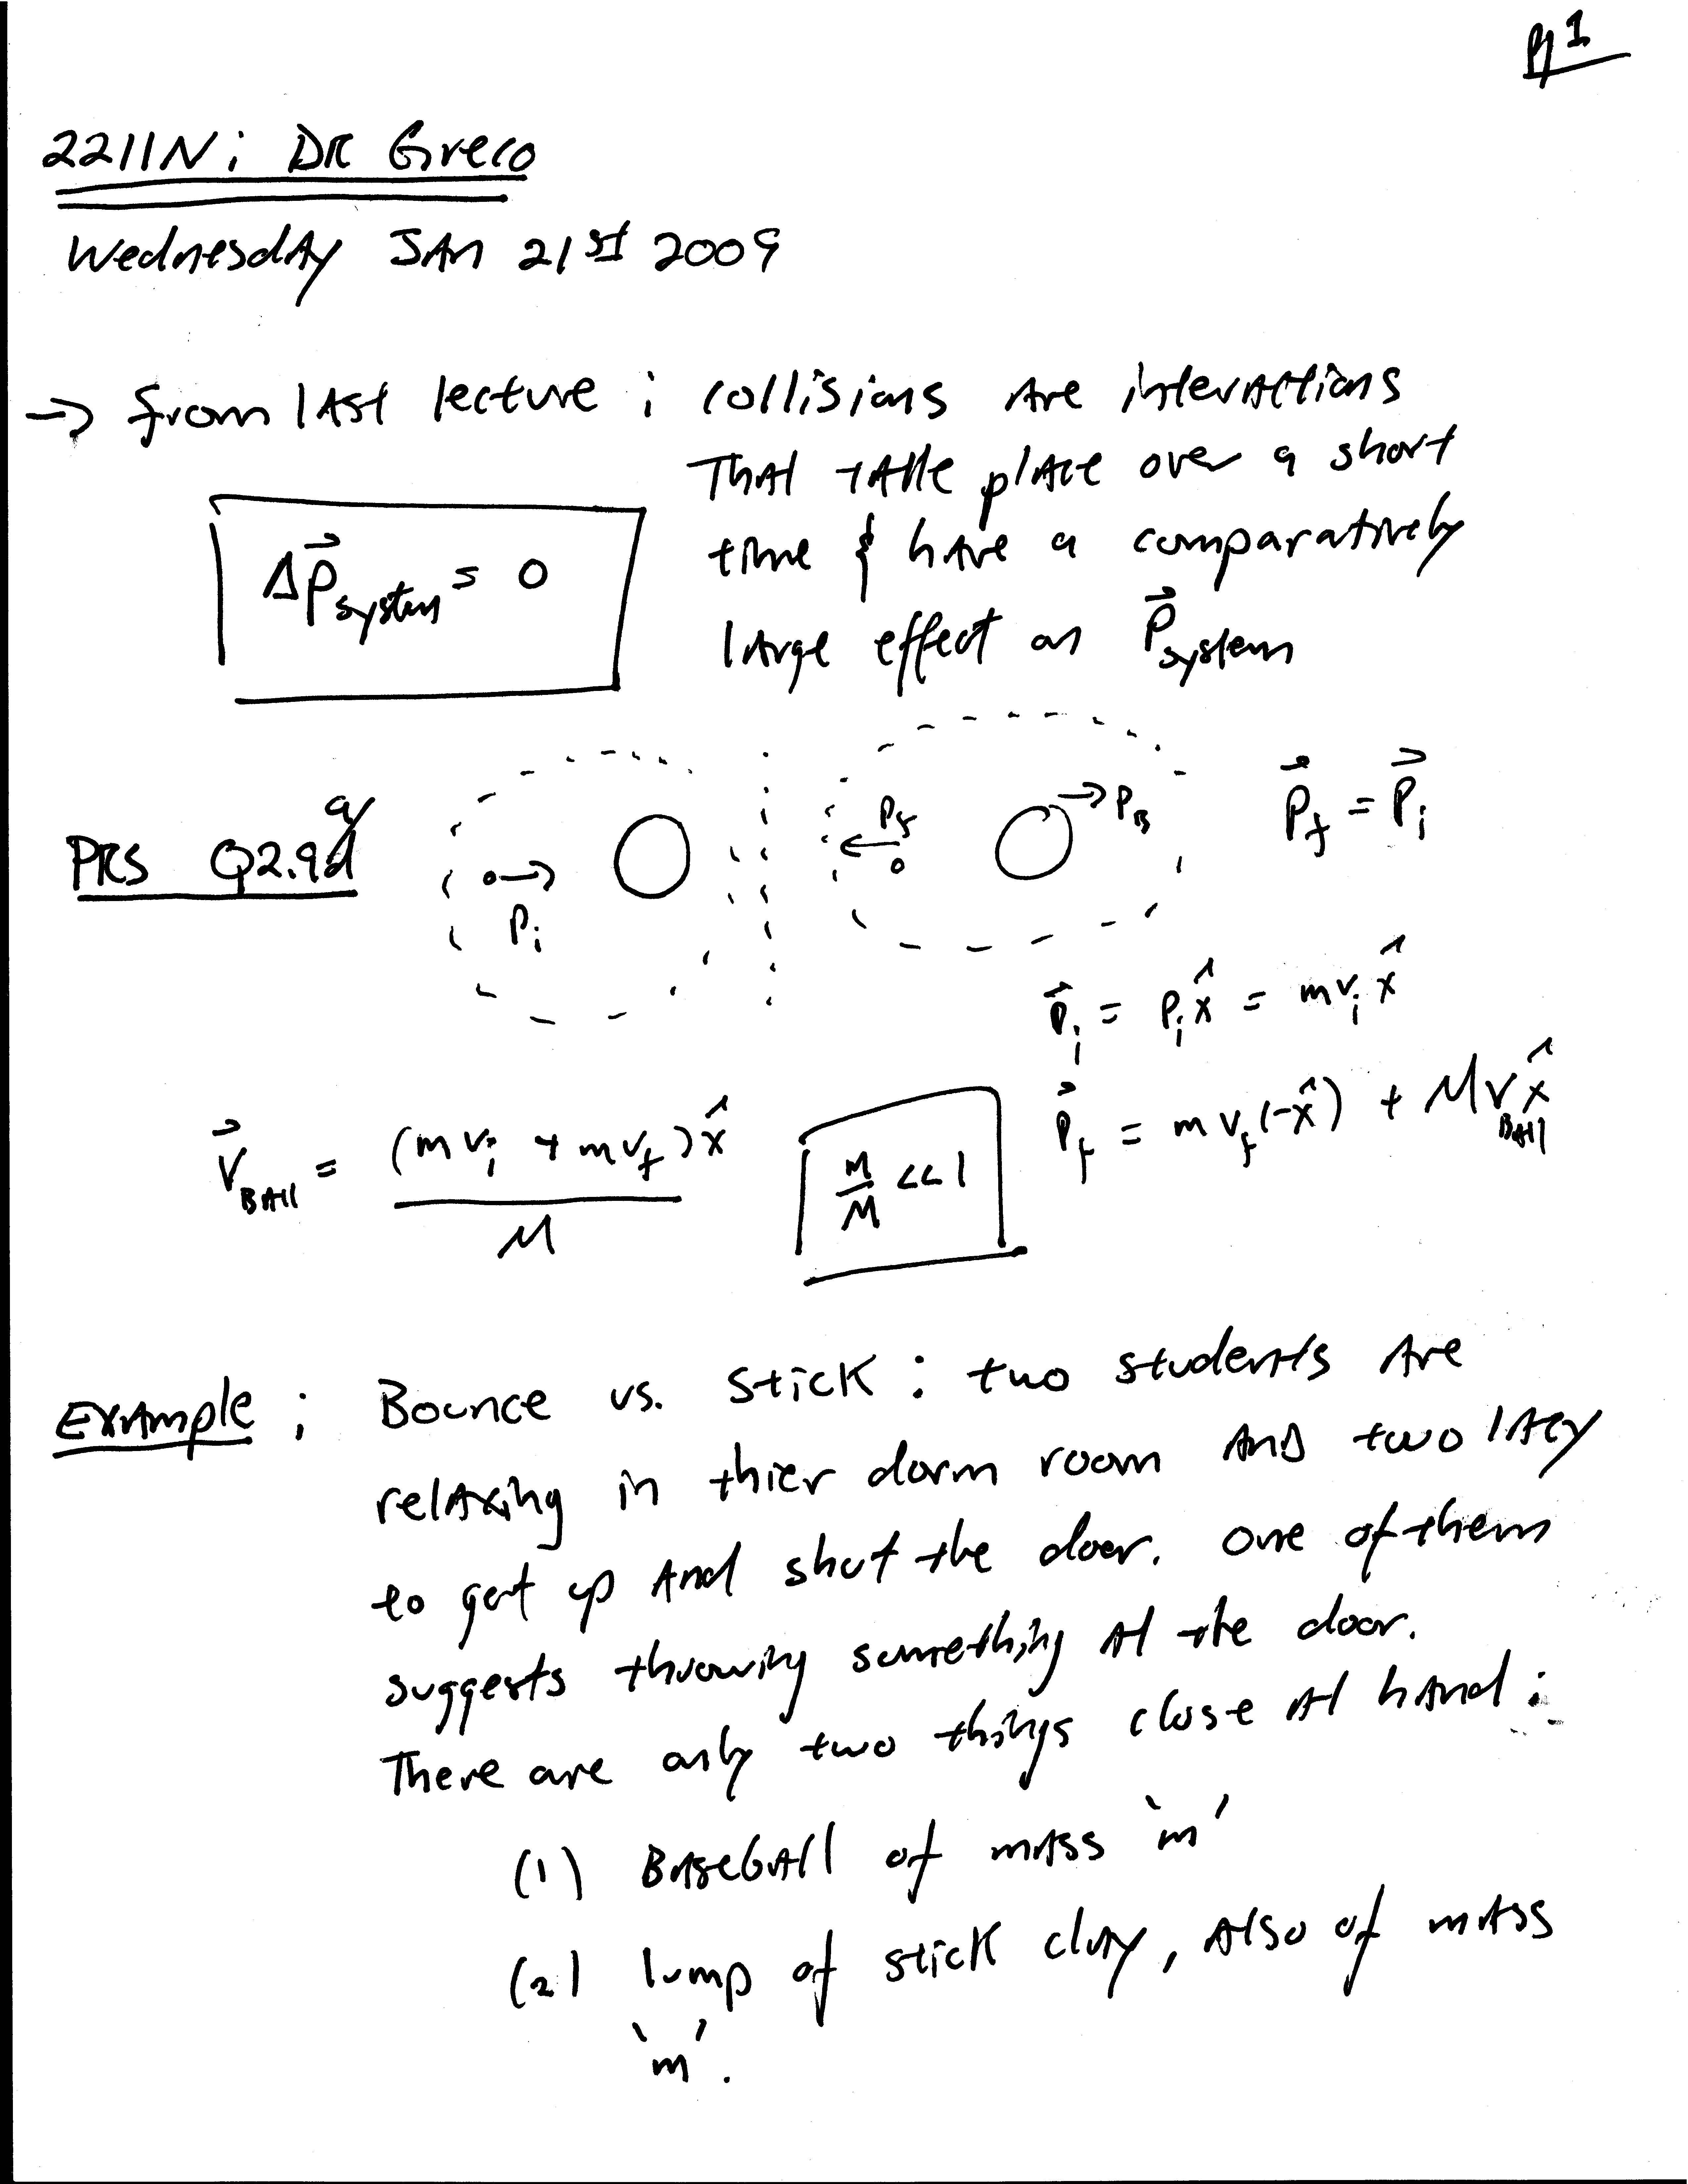 pg 1
2211N; DR Greco
Wednesday JAN 21st 2009
→ from last lecture; collisions are interactions
That take place over a short
time & have a comparatively
large effect on P⃗system
ΔP⃗system = 0
PRS Q2.9 a/d
Pi
Pf
PB
P⃗f = P⃗i
P⃗i = Pi x̂ = m vi x̂
P⃗f = m vf (-x̂) + M vBall x̂
V⃗BAll = (m vi + m vf) x̂ / M
m/M << 1
Example; Bounce vs. stick: two students are
relaxing in thier dorm room AND two lazy
to get up and shut the door. one of them
suggests throwing something at the door.
There are only two things close at hand:
(1) Baseball of mass 'm'
(2) lump of stick clay, also of mass
'm'.